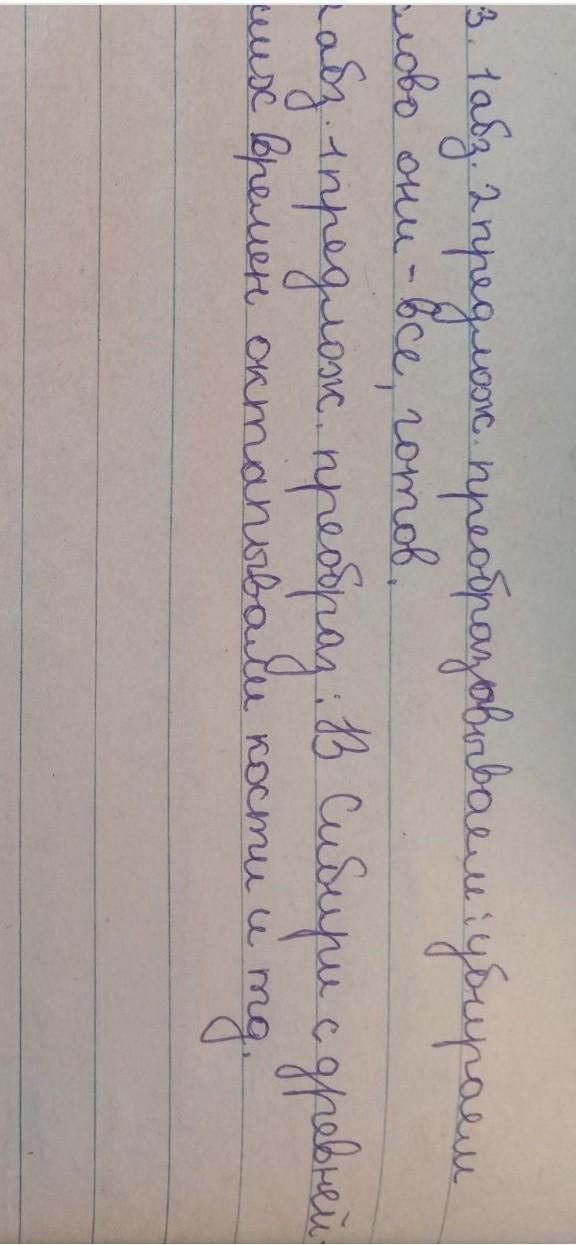 3. 1 абз. 2 предлож. преобразовываем: убираем
слово они - все, готов.
2 абз. 1 предлож. преобраз.: В Сибири с древней-
ших времен октапывали кости и тд.